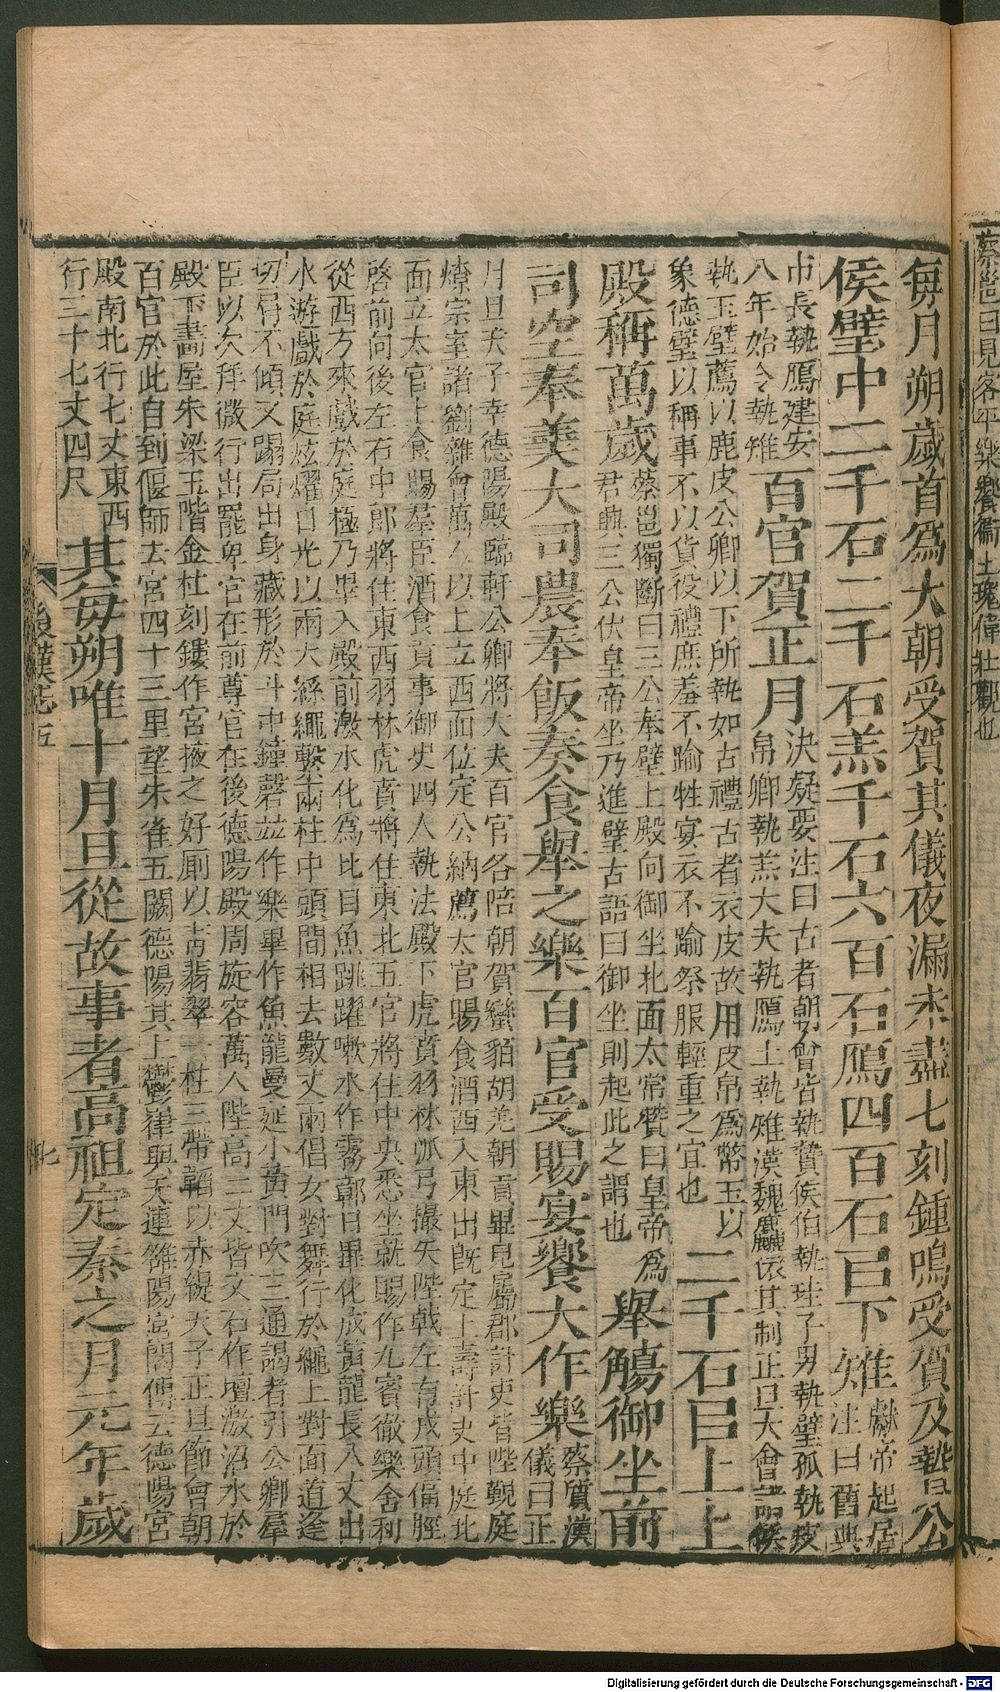 蔡邕曰見客平樂饗
每月朔歲首爲大朝受賀其儀夜漏未盡七刻鍾鳴受賀及贄公
侯璧中二千石二千石羔千石六百石鴈四百石巳下雉獻帝起居
注曰舊典
市長執鴈建安
八年始令執雉百官賀正月決疑要注曰古者朝會皆執贄侯伯執珪子男執璧孤執皮
帛卿執羔大夫執鴈士執雉漢魏麤依其制正旦大會諸侯
執玉璧薦以鹿皮公卿以下所執如古禮古者衣皮故用皮帛爲幣玉以
象德璧以稱事不以貨役禮庶羞不踰牲宴衣不踰祭服輕重之宜也二千石巳上上
殿稱萬歲蔡邕獨斷曰三公奉璧上殿向御坐北面太常贊曰皇帝爲
君興三公伏皇帝坐乃進璧古語曰御坐則起此之謂也舉觴御坐前
司空奉羹大司農奉飯奏食舉之樂百官受賜宴饗大作樂蔡質漢
儀曰正
月旦天子幸德陽殿臨軒公卿將大夫百官各陪朝賀蠻貊胡羌朝貢畢見屬郡計吏皆陛覲庭
燎宗室諸劉雜會萬人以上立西面位定公納薦太官賜食酒西入東出旣定上壽計吏中庭北
面立太官上食賜羣臣酒食貢事御史四人執法殿下虎賁羽林弧弓撮矢陛戟左右戎頭偪脛
啓前向後左右中郎將住東西羽林虎賁將住東北五官將住中央悉坐就賜作九賓徹樂舍利
從西方來戲於庭極乃畢入殿前激水化爲比目魚跳躍嗽水作霧鄣日畢化成黃龍長八丈出
水遊戲於庭炫燿日光以兩大絲繩繫兩柱中頭間相去數丈兩倡女對舞行於繩上對面道逢
切肩不傾又蹋局出身藏形於斗中鐘磬並作樂畢作魚龍曼延小黃門吹三通謁者引公卿羣
臣以次拜微行出罷卑官在前尊官在後德陽殿周旋容萬人陛高二丈皆文石作壇激沼水於
殿下畫屋朱梁玉階金柱刻鏤作宮掖之好厠以靑翡翠一柱三帶韜以赤緹天子正旦節會朝
百官於此自到偃師去宮四十三里望朱雀五闕德陽其上鬱律與天連雒陽宮閣傳云德陽宮
殿南北行七丈東西
行三十七丈四尺其每朔唯十月旦從故事者高祖定秦之月元年歲
後漢志五
七
Digitalisierung gefördert durch die Deutsche Forschungsgemeinschaft - DFG